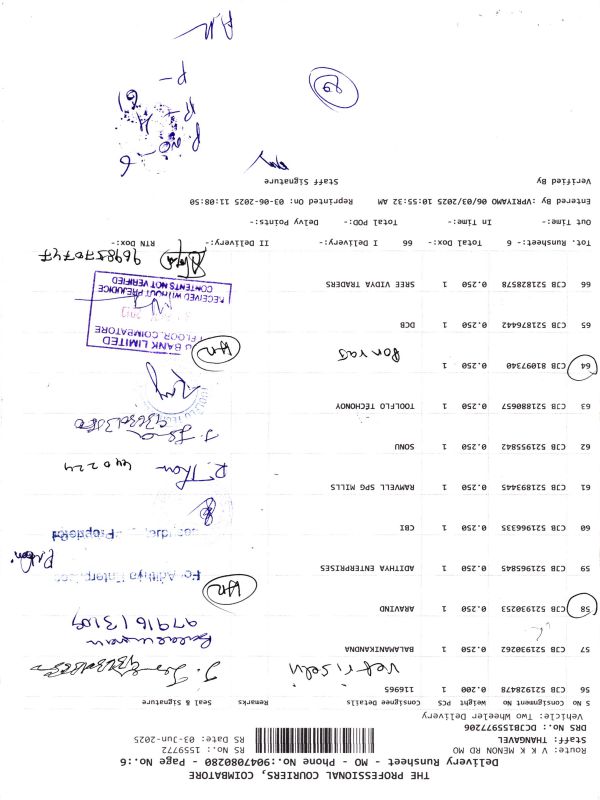 THE PROFESSIONAL COURIERS, COIMBATORE
Delivery Runsheet - MO - Phone No.:9047080280 - Page No.:6
Route: V K K MENON RD MO RS No.: 1559772
Staff: THANGAVEL RS Date: 03-Jun-2025
DRS No.: DCJB155977206
Vehicle: Two Wheeler Delivery
S No Consignment No Weight PCS Consignee Details Remarks Seal & Signature
56 CJB 521928478 0.200 1 116965
57 CJB 521939262 0.250 1 BALAMANIKANDNA
9791613109
58 CJB 521930253 0.250 1 ARAVIND
59 CJB 521965845 0.250 1 ADITHYA ENTERPRISES
For Aditya Enterprises
60 CJB 521966335 0.250 1 CBI
61 CJB 521893445 0.250 1 RAMWELL SPG MILLS
62 CJB 521955842 0.250 1 SONU
63 CJB 521880657 0.250 1 TOOLFLO TECHONOY
64 CJB 81097340 0.250 1
65 CJB 521876442 0.250 1 DCB
BANK LIMITED
FLOOR, COIMBATORE
RECEIVED WITHOUT PREJUDICE
CONTENTS NOT VERIFIED
66 CJB 521828578 0.250 1 SREE VIDYA TRADERS
9698570747
Tot. Runsheet:- 6 Total Dox:- 66 I Delivery:- II Delivery:- RTN Dox:-
Out Time:- In Time:- Total POD:- Delvy Points:-
Entered By :VPRIYAMO 06/03/2025 10:55:32 AM Reprinted On: 03-06-2025 11:08:50
Verified By Staff Signature
P. No-6